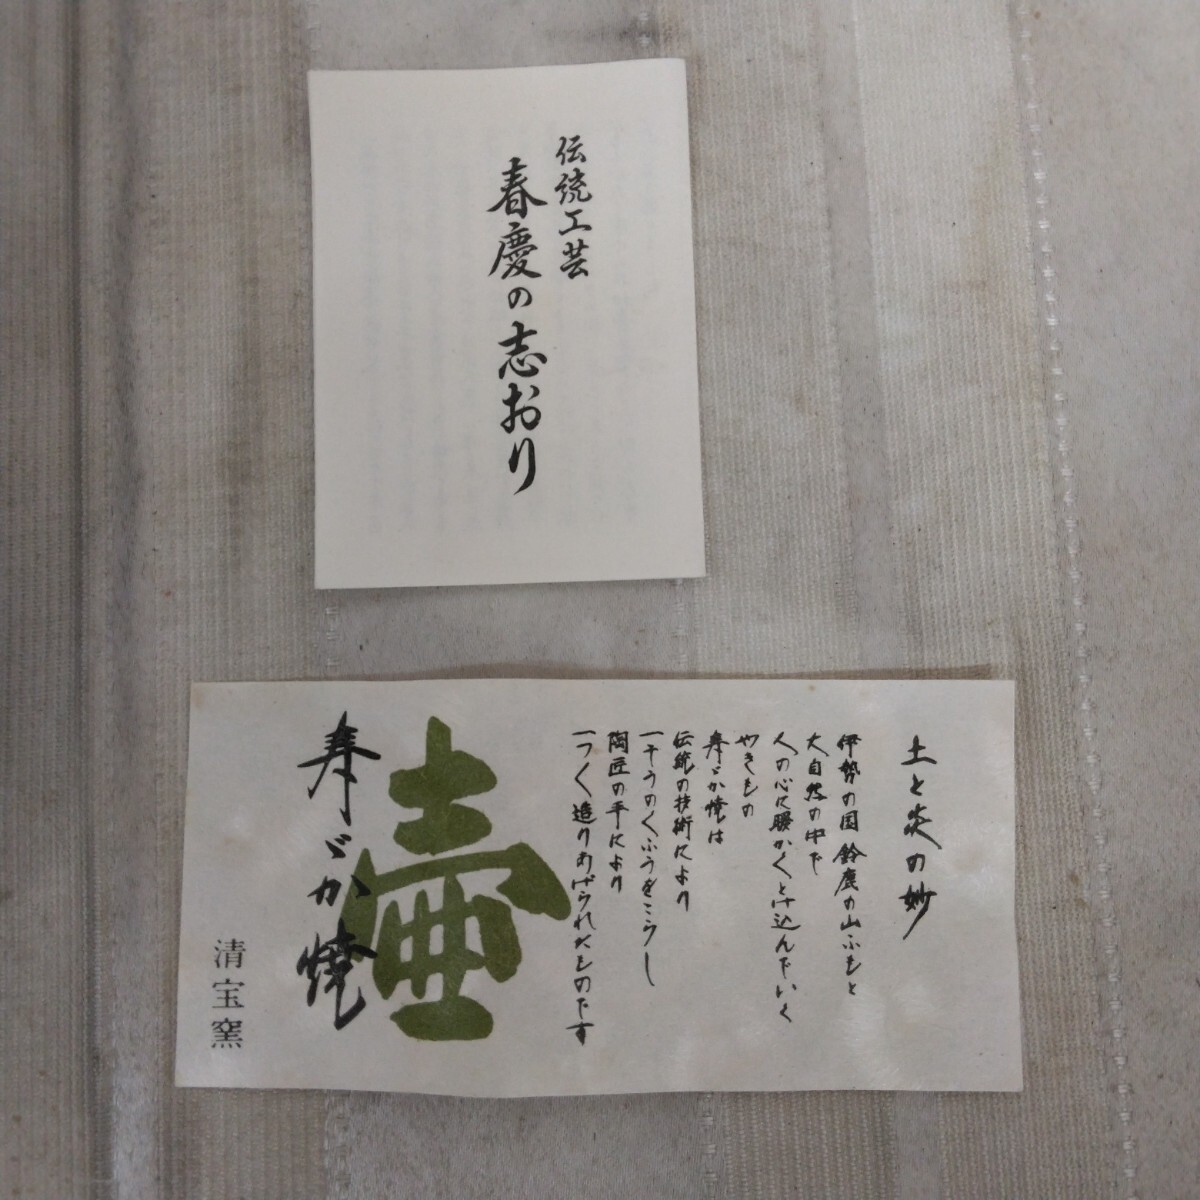 伝統工芸
春慶の志おり
土と炎の妙
伊勢の国鈴鹿の山ふもと
大自然の中で
人の心に暖かくとけ込んでいく
やきもの
寿ゞか焼は
伝統の技術により
一千うのくふうをこらし
陶匠の手により
一つ〱造りあげられたものです
壷
寿ゞか焼
清宝窯